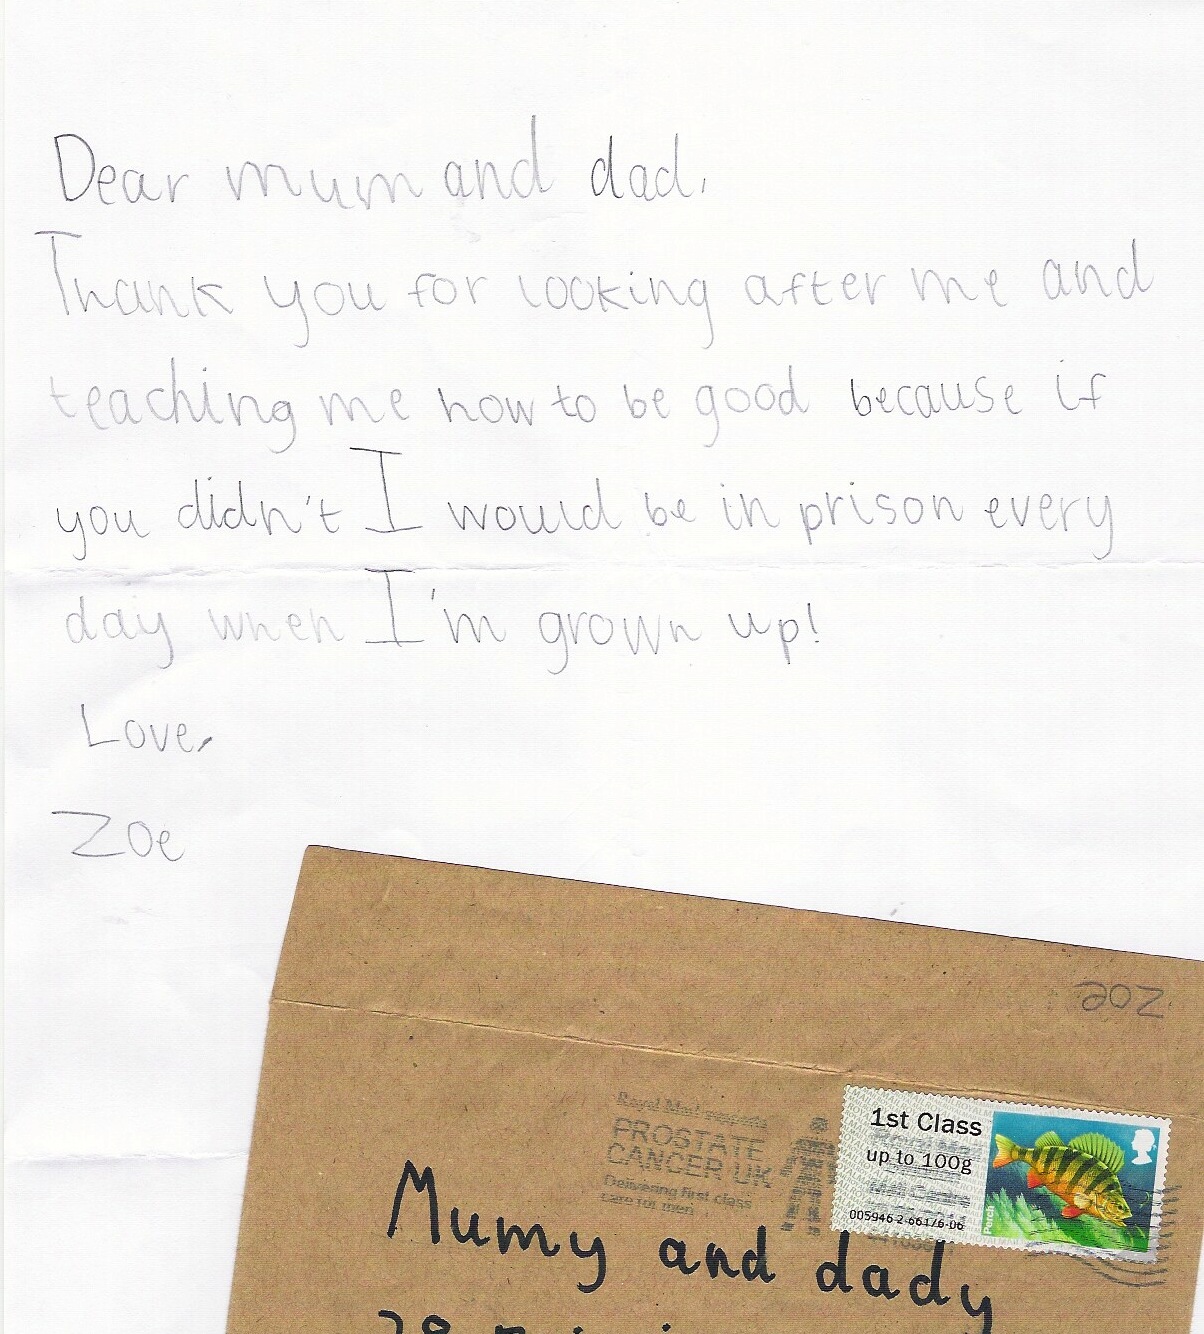 Dear mum and dad,
Thank you for looking after me and
teaching me how to be good because if
you didn't I would be in prison every
day when I'm grown up!
Love,
Zoe
Zoe
1st Class
up to 100g
Perch
Royal Mail supports
PROSTATE
CANCER UK
Delivering first class
care for men
Mumy and dady